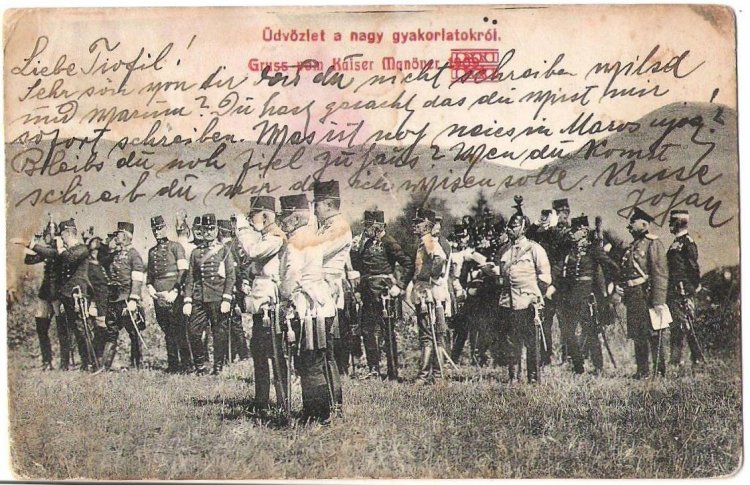 Üdvözlet a nagy gyakorlatokról.
Gruss vom Kaiser Manöver
Liebe Tiofil!
Sehr son von dir das du nicht schreiben wilsd
und warum? Du hast gesacht das du wirst mir
sofort schreiben. Was ist noch neies in Maros
Bleibs du noh fiel zu haus? Wen du komst
schreib du mir das ich wisen solte. Kusse
Johan